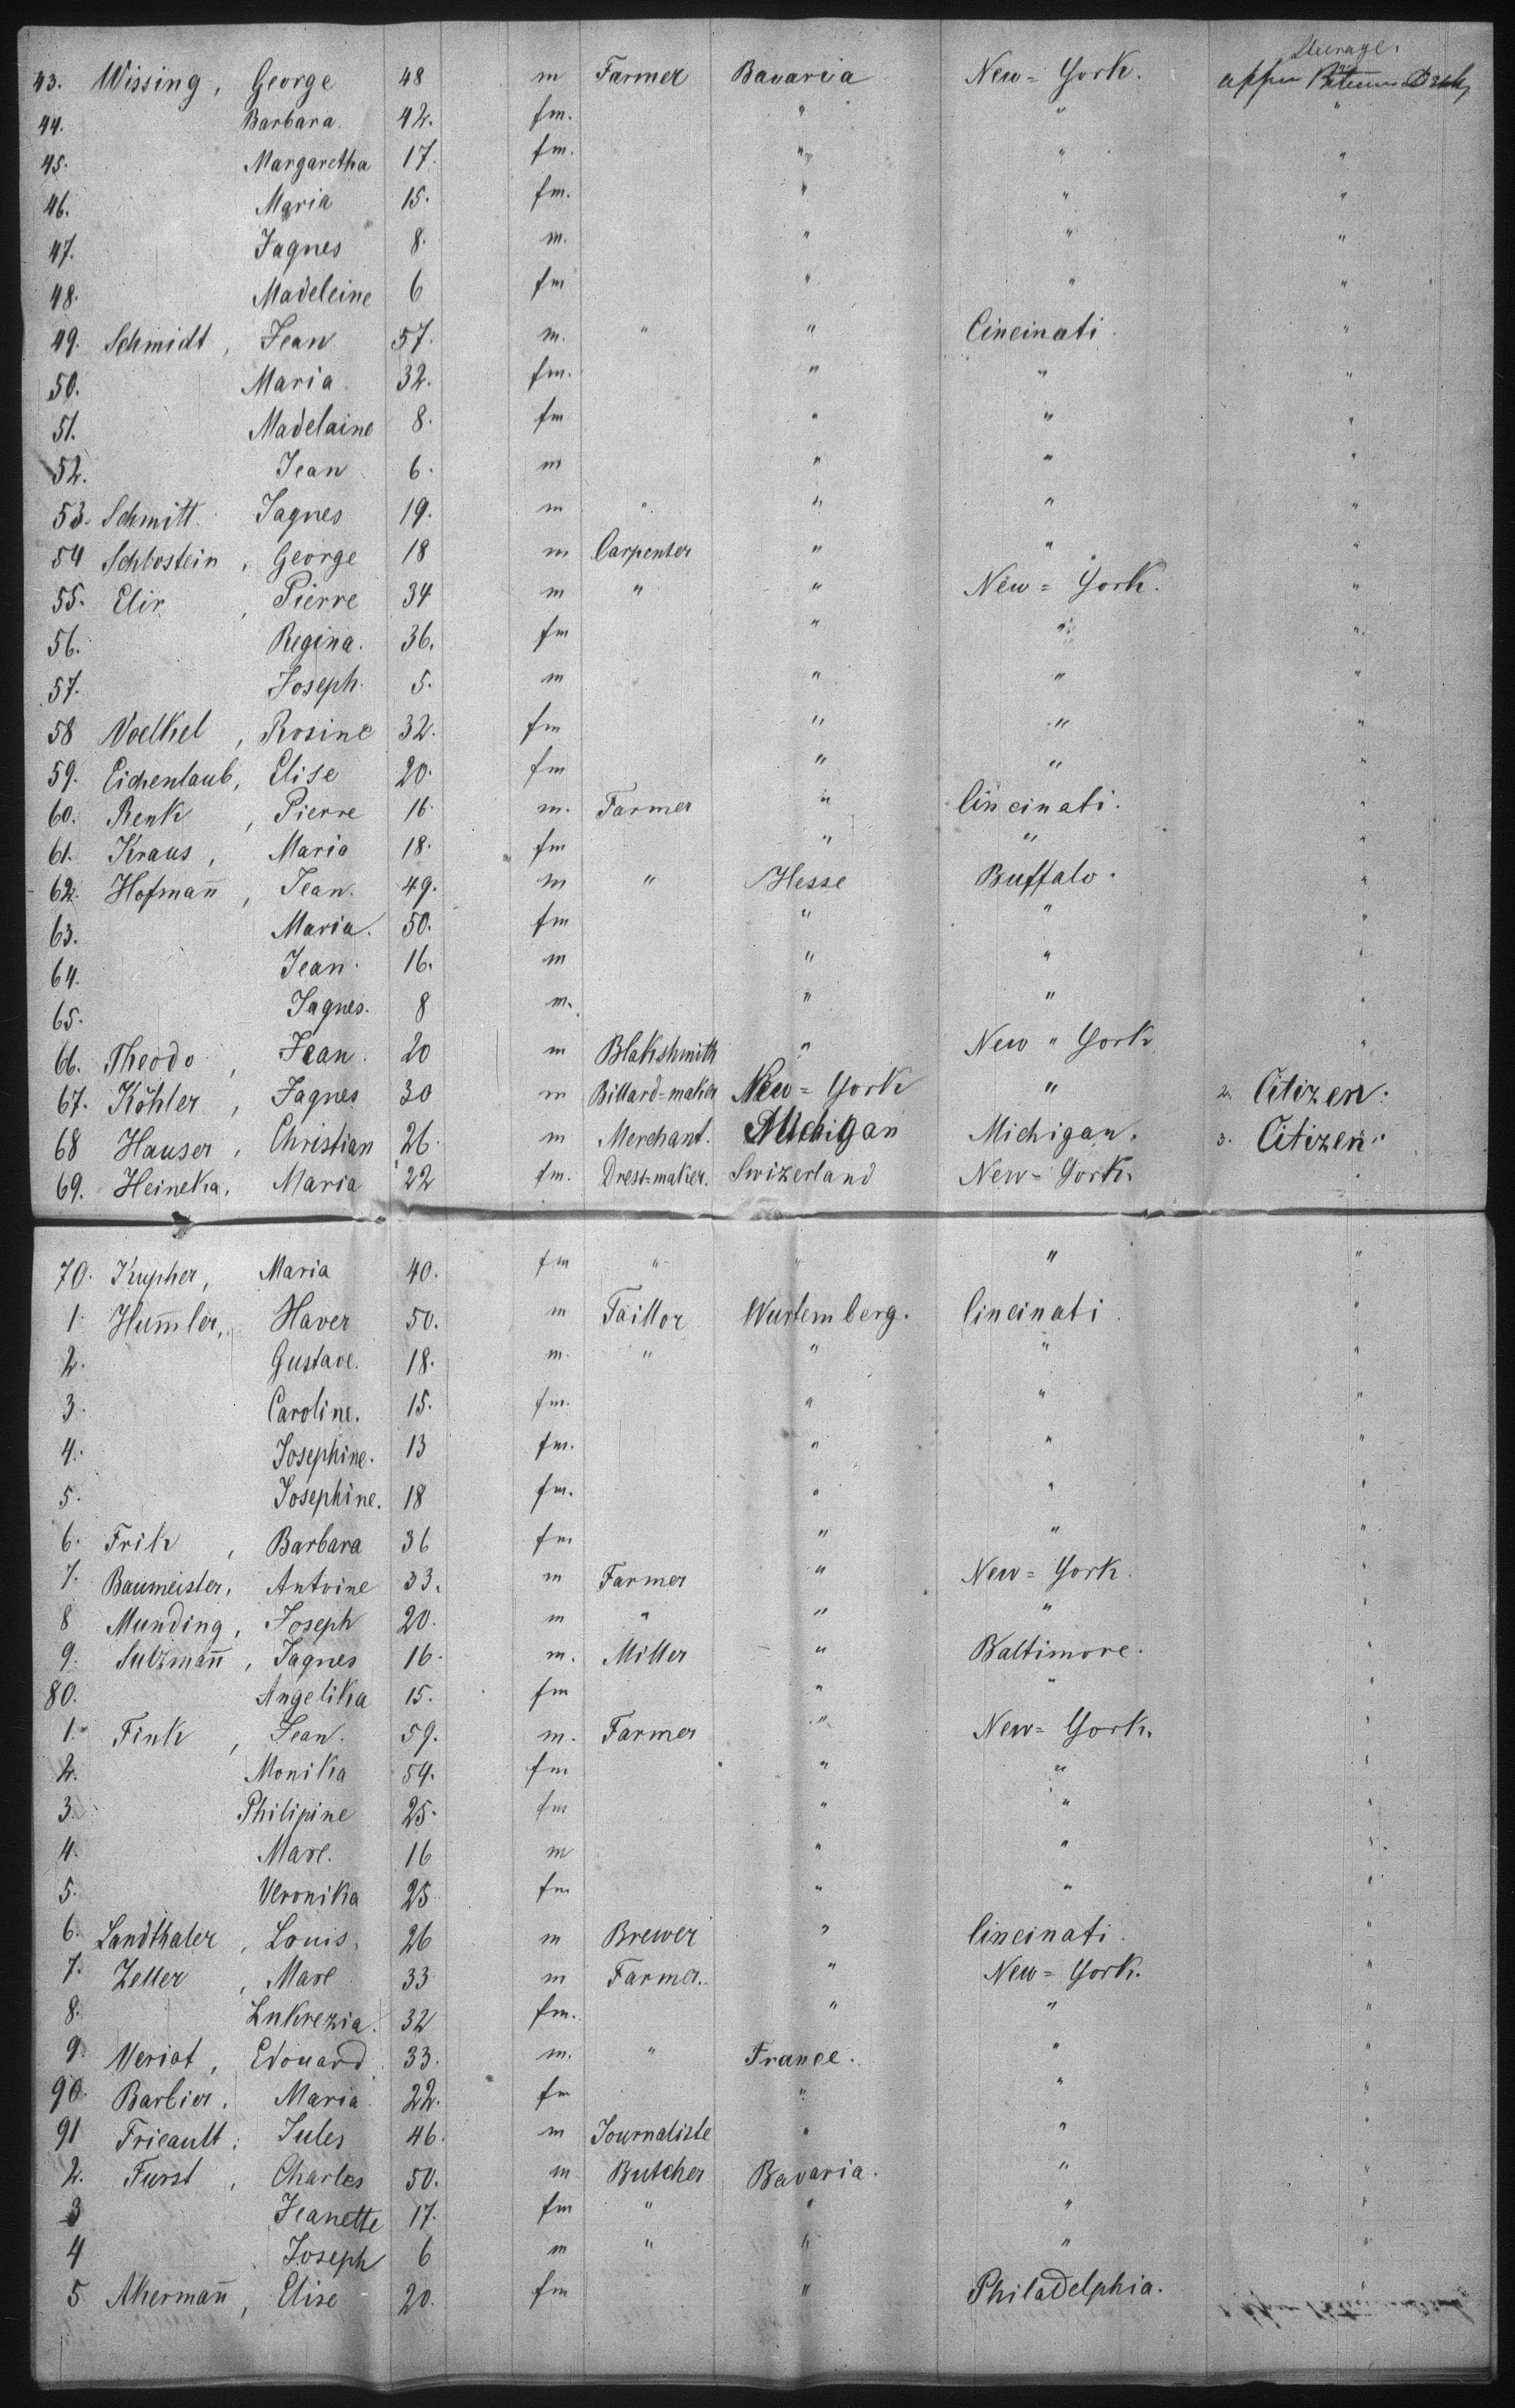 Steerage.
43. Wissing, George 48 m Farmer Bavaria New=York. upper
44. Barbara. 42. fm. " " "
45. Margaretha 17. fm. " " "
46. Maria 15. fm. " " "
47. Jaques 8. m. " " "
48. Madeleine 6 fm " " "
49. Schmidt, Jean 57. m. " " Cincinati. "
50. Maria. 32. fm. " " "
51. Madelaine 8. fm " " "
52. Jean 6. m " " "
53. Schmitt. Jaques 19. m " " " "
54 Schlostein, George 18 m Carpenter " " "
55. Elir, Pierre 34 m " " New=York. "
56. Regina. 36. fm " " "
57. Joseph. 5. m " " "
58 Noelkel, Rosine 32. fm " " "
59. Eichenlaub, Elise 20. fm " " "
60. Renk, Pierre 16. m. Farmer " Cincinati. "
61. Kraus, Maria 18. fm " " "
62. Hofman̄, Jean. 49. m " Hesse Buffalo. "
63. Maria. 50. fm " " "
64. Jean. 16. m " " "
65. Jaques. 8 m. " " "
66. Theodo, Jean. 20 m Blakshmith " New " York "
67. Köhler, Jaques 30 m Billard=maker New=York " 2. Citizen.
68 Hauser, Christian 26. m Merchant. Michigan Michigan. 3. Citizen.
69. Heineka, Maria 22 fm. Dress=maker. Swizerland New=York. "
70. Kupher, Maria 40. fm " " " "
1. Hum̄ler, Xaver 50. m Taillor Wurtemberg. Cincinati. "
2. Gustave. 18. m. " " " "
3. Caroline. 15. fm. " " "
4. Josephine. 13 fm. " " "
5. Josephine. 18 fm. " " "
6. Frik, Barbara 36 fm " " "
7. Baumeister, Antoine 33. m Farmer " New=York. "
8 Munding, Joseph 20. m " " " "
9. Sulzman̄, Jaques 16. m. Miller " Baltimore. "
80. Angelika 15. fm " " "
1. Fink, Jean. 59. m. Farmer " New=York. "
2. Monika 54. fm " " "
3. Philipine 25. fm " " "
4. Marc. 16 m " " "
5. Veronika 25 fm " " "
6. Landthaler, Louis, 26 m Brewer " Cincinati. "
7. Zeller, Marc 33 m Farmer. " New=York. "
8. Lukrezia. 32 fm. " " "
9. Meriot, Edouard. 33. m. " France. " "
90. Barbier, Maria. 22. fm " " "
91 Fricault, Jules 46. m Journaliste " " "
2. Furst, Charles 50. m Butcher Bavaria. " "
3 Jeanette 17. fm " " " "
4 Joseph 6 m " " " "
5 Akerman̄, Elise 20. fm " Philadelphia. "